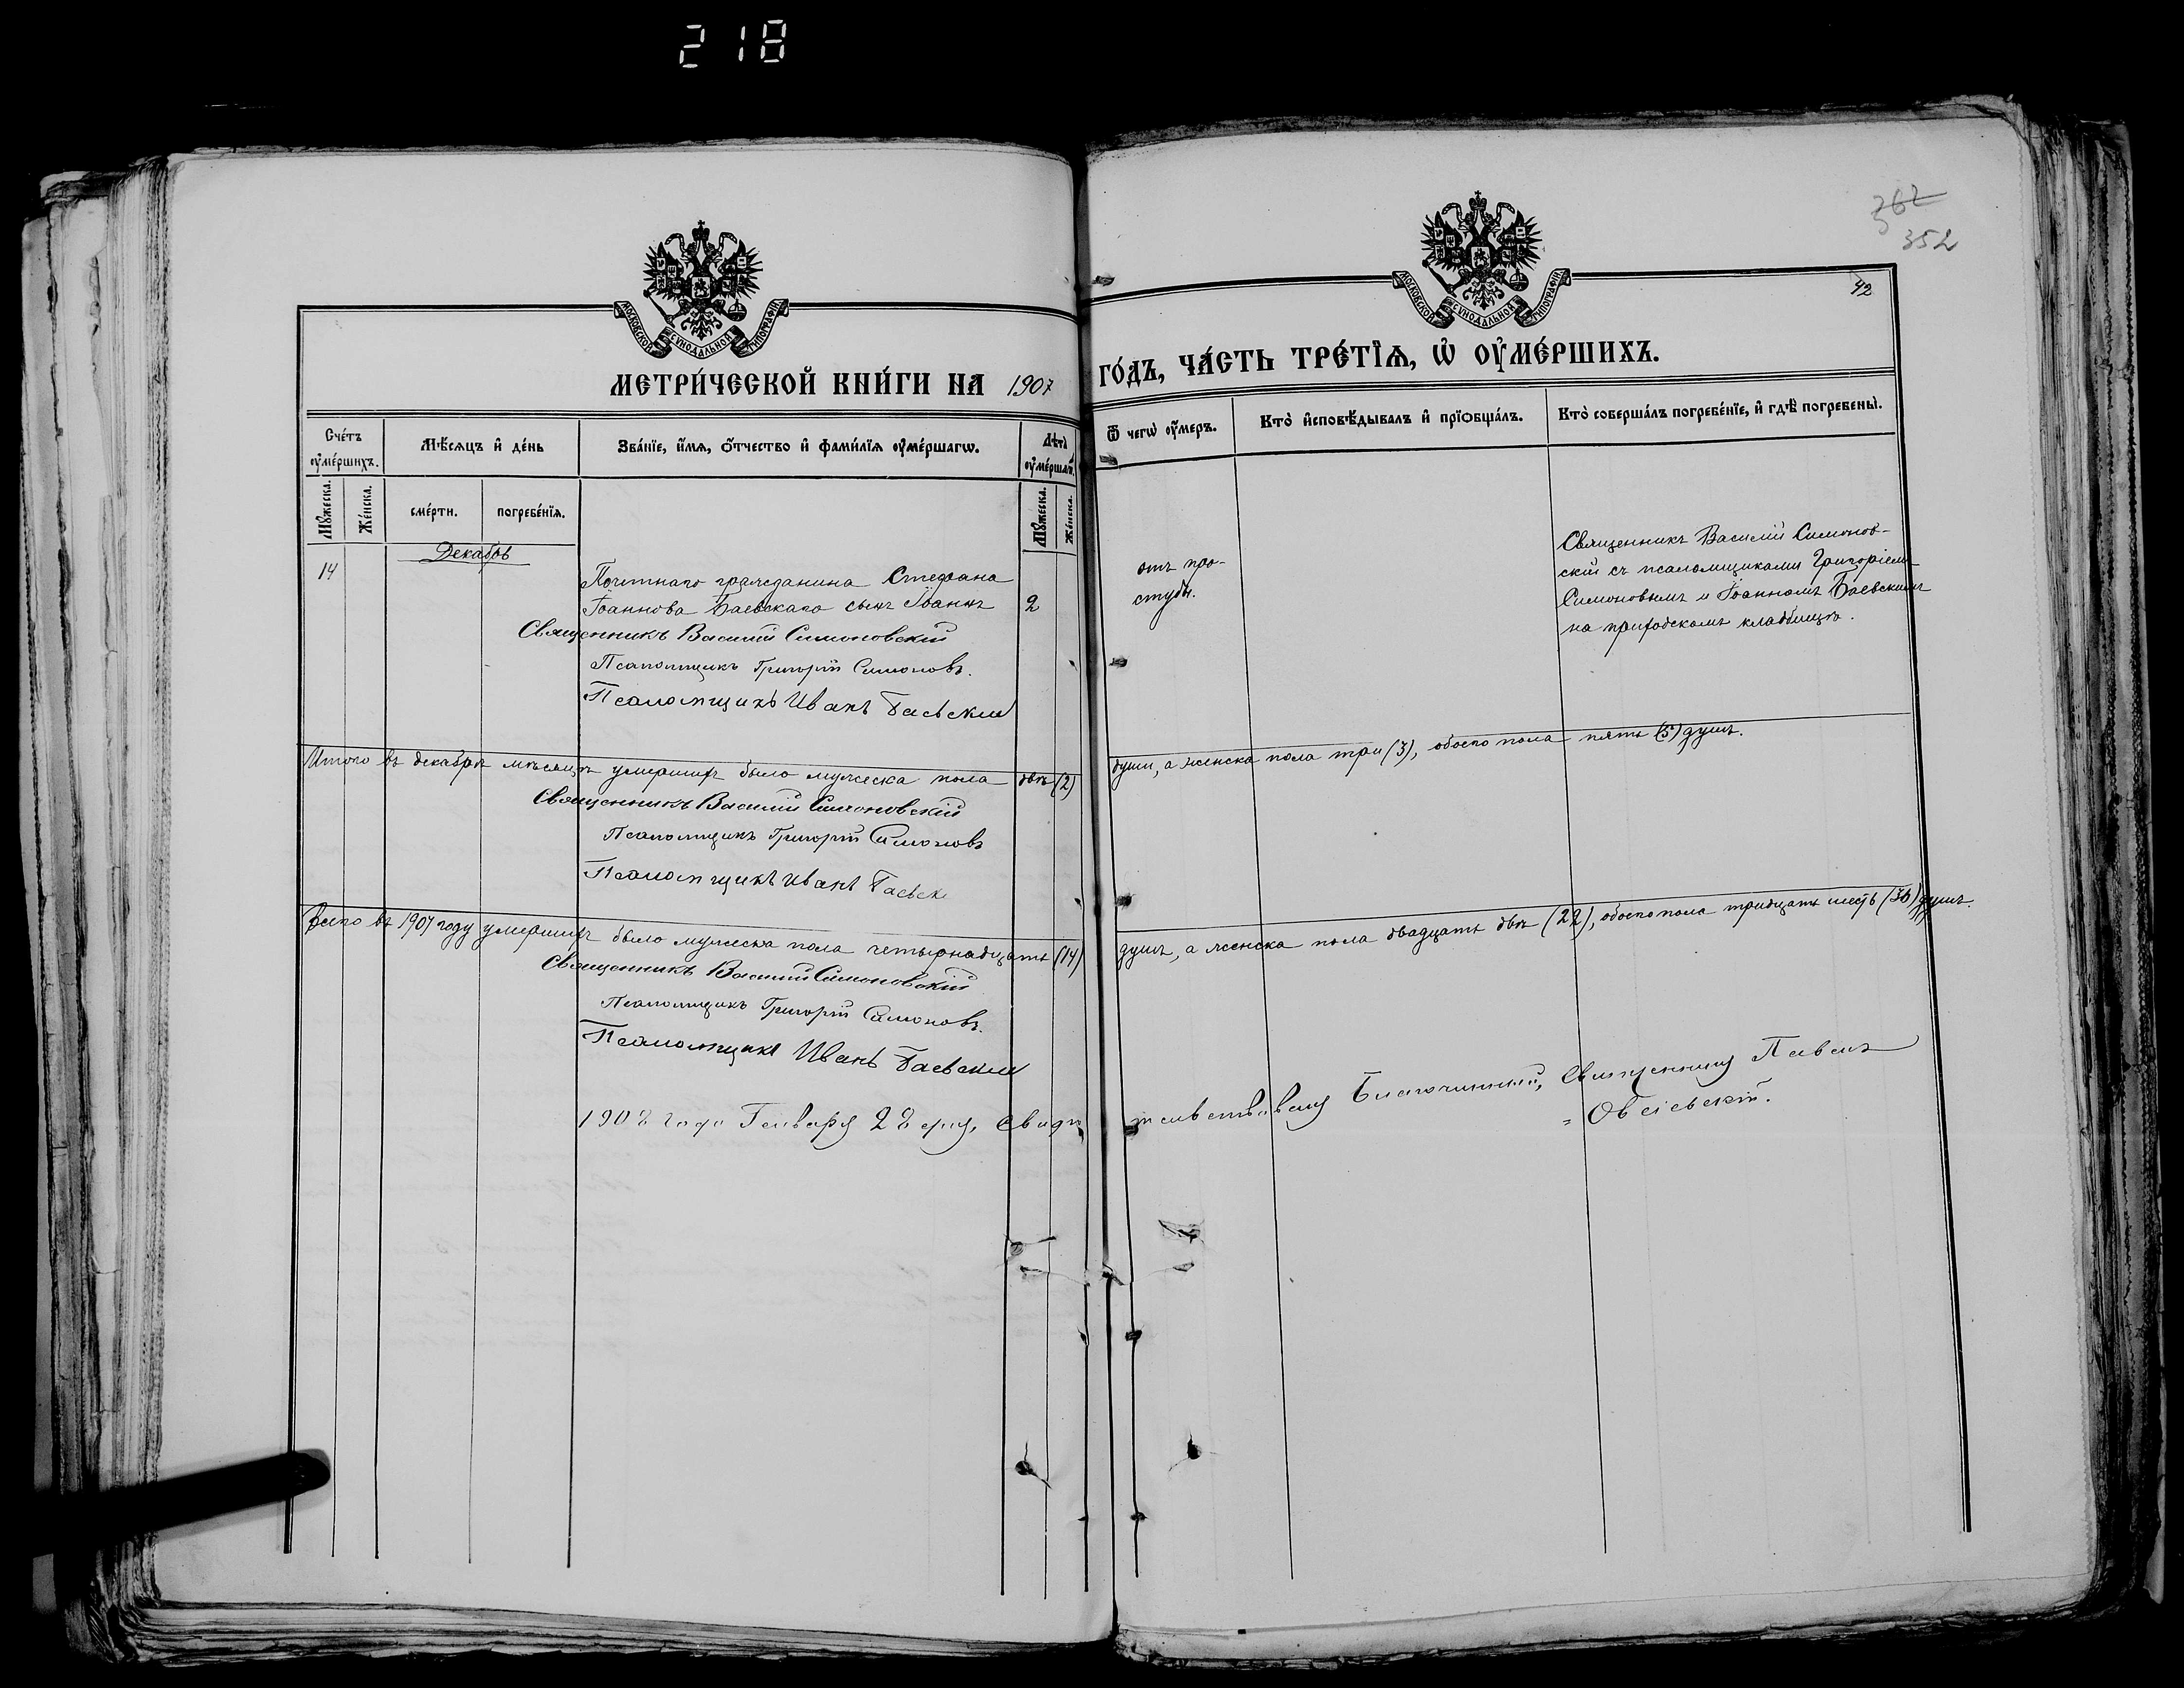 218
362
352
42
МОСКОВСКОЙ СУНОДАЛЬНОЙ ТИПОГРАФІИ
МОСКОВСКОЙ СУНОДАЛЬНОЙ ТИПОГРАФІИ
МЕТРИ́ЧЕСКОЙ КНИ́ГИ НА 1907
ГО́ДЪ, ЧА́СТЬ ТРЕ́ТЇѦ, Ѽ ОУ҆МЕ́РШИХЪ.
Сче́тъ оу҆ме́ршихъ.
Мѣ́сяцъ и҆ де́нь
Зва́нїе, и҆́мя, ѻ҆́тчество и҆ фами́лїя оу҆ме́ршагѡ.
Лѣта̀ оу҆ме́ршагѡ
Ѿ чегѡ̀ оу҆́меръ.
Кто̀ и҆сповѣ́дывалъ и҆ прїѡбща́лъ.
Кто̀ соверша́лъ погребе́нїе, и҆ гдѣ̀ погребены̀.
Мꙋжеска.
Же́нска.
сме́рти.
погребе́нїя.
Мꙋжеска.
Же́нска.
Декабрь
14
Почетнаго гражданина Стефана
Іоаннова Баевскаго сынъ Іоаннъ
2
отъ про-
студы.
Священникъ Василій Симонов-
скій съ псаломщиками Григоріемъ
Симоновымъ и Іоанномъ Баевскимъ
на приходскомъ кладбищѣ.
Священникъ Василій Симоновскій
Псаломщикъ Григорій Симоновъ.
Псаломщикъ Иванъ Баевский
Итого въ декабрѣ мѣсяцѣ умершихъ было мужеска пола двѣ (2) души, а женска пола три (3), обоего пола пять (5) душъ.
Священникъ Василій Симоновскій
Псаломщикъ Григорій Симоновъ
Псаломщикъ Иванъ Баевск
Всего въ 1907 году умершихъ было мужеска пола четырнадцать (14) душъ, а женска пола двадцать двѣ (22), обоего пола тридцать шесть (36) душъ.
Священникъ Василій Симоновскій
Псаломщикъ Григорій Симоновъ.
Псаломщикъ Иванъ Баевский
1908 года Генваря 28 дня, свидѣтельствовалъ Благочинный, Священникъ Павелъ
Овсіевскій.